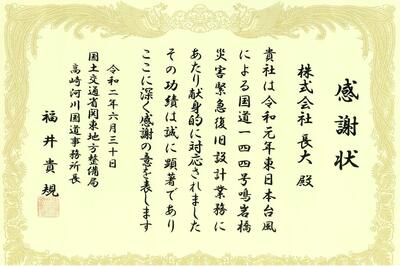 感謝状
株式会社 長大 殿
貴社は令和元年東日本台風
による国道一四四号鳴岩橋
災害緊急復旧設計業務に
あたり献身的に対応されました
その功績は誠に顕著であり
ここに深く感謝の意を表します
令和二年六月三十日
国土交通省関東地方整備局
高崎河川国道事務所長
福井貴規